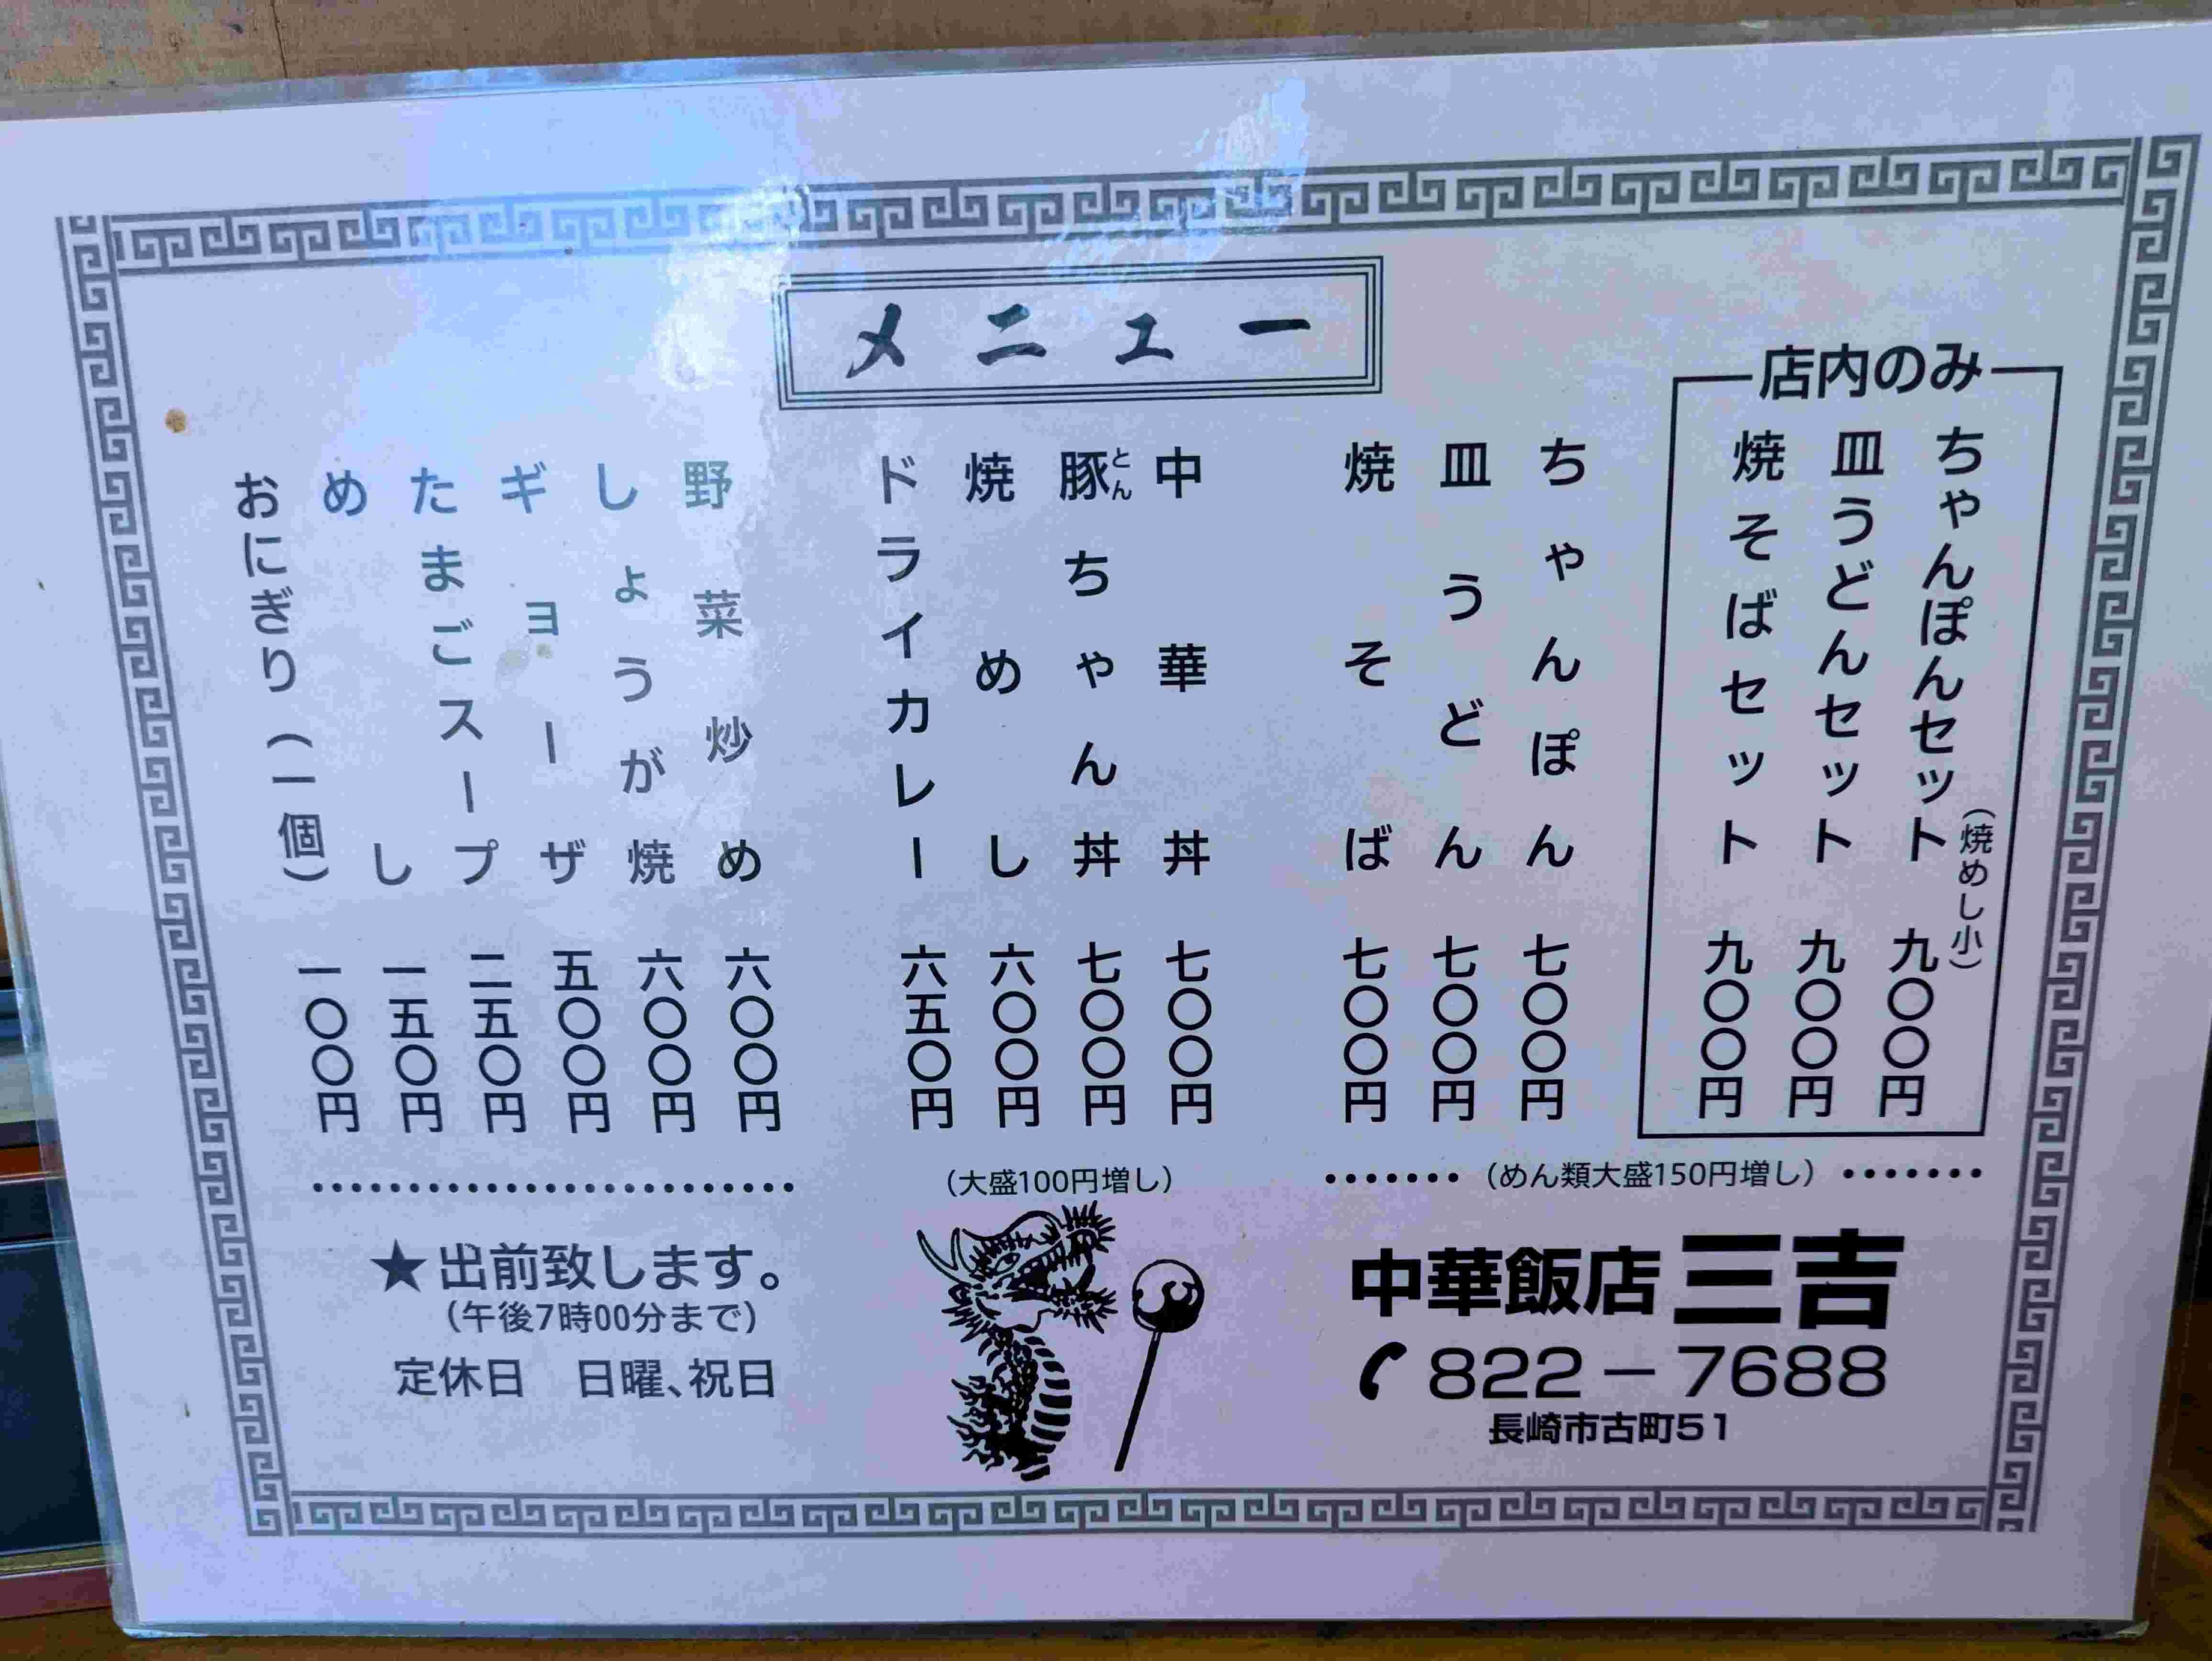 メニュー
店内のみ
ちゃんぽんセット 九〇〇円
(焼めし小)
皿うどんセット 九〇〇円
焼そばセット 九〇〇円
ちゃんぽん 七〇〇円
皿うどん 七〇〇円
焼そば 七〇〇円
(めん類大盛150円増し)
中華丼 七〇〇円
豚ちゃん丼 七〇〇円
とん
焼めし 六〇〇円
ドライカレー 六五〇円
(大盛100円増し)
野菜炒め 六〇〇円
しょうが焼 六〇〇円
ギョーザ 五〇〇円
たまごスープ 二五〇円
めし 一五〇円
おにぎり(一個) 一〇〇円
★出前致します。
(午後7時00分まで)
定休日 日曜、祝日
中華飯店 三吉
822-7688
長崎市古町51